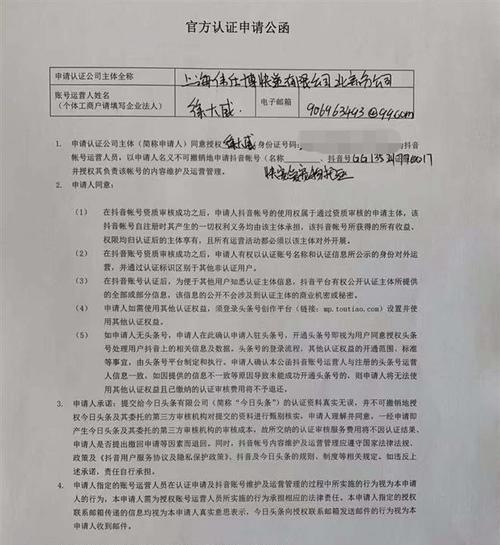 官方认证申请公函
申请认证公司主体全称 上海 有限公司
账号运营人姓名
(个体工商户请填写企业法人) 徐大威 电子邮箱 906963443@qq.com
1. 申请认证公司主体(简称申请人)同意授权徐大威身份证号码:
帐号运营人员,以申请人名义不可撤销地申请抖音帐号(名称 、抖音号
并授权其负责该帐号的内容维护及运营管理。
2. 申请人同意:
(1) 在抖音帐号资质审核成功之后,申请人抖音帐号的使用权属于通过资质审核的申请主体,该抖
音帐号自注册时其产生的一切权利义务均由该主体承担,该抖音帐号所获得的所有收益、
权限均归认证后的主体享有,且所有运营活动都必须以该主体对外开展。
(2) 在抖音账号资质审核成功之后,申请人有权以认证账号名称和认证信息所公示的身份对外运
营,并通过认证标识区别于其他非认证用户。
(3) 在抖音账号认证后,为便于其他用户知悉认证主体信息,抖音平台有权公开认证主体所提供
的全部或部分信息,该信息的公开不会涉到认证主体的商业机密或秘密。
(4) 申请人如需使用其他认证权益,须登录头条号创作平台(链接:mp.toutiao.com)设置并使
用其他认证权益。
(5) 如申请人无头条号,申请人在此确认申请人入驻头条号,开通头条号即视为用户同意授权头条
号处理用户抖音上的相关信息及数据。头条号的登录流程,其他认证权益的开通范围、标准
等事宜,由头条号平台制定和执行。申请人确认本公函抖音账号运营人与注册的头条号运营
人信息一致,如因提供的信息不一致等原因导致未能成功开通头条号的,则申请人将无法使
用其他认证权益且已缴纳的认证审核费用将不予退还。
3. 申请人承诺:提交给今日头条有限公司(简称“今日头条”)的认证资料真实无误,并不可撤销地授
权今日头条及其委托的第三方审核机构对提交的资料进行甄别核实。申请人理解并同意,一经申请即
产生今日头条及其委托的第三方审核机构的审核成本,故所交纳的认证审核服务费用将不因认证结果、
申请人是否提出撤回申请等因素而退回。同时,抖音帐号内容维护及运营管理应遵守国家法律法规、
政策及《抖音用户服务协议及隐私保护政策》、抖音及今日头条的规则、制度等相关规定。如违反上
述承诺,责任自行承担。
4. 申请人指定的账号运营人员在认证申请及抖音账号维护及运营管理的过程中所实施的行为视为本申请
人的行为,本申请人需为授权账号运营人员所实施的行为承担相应的法律责任。本申请人指定的授权
联系邮箱传递的信息均视为本申请人真实意思表示,今日头条向授权联系邮箱发送邮件的行为视为本
申请人收到邮件。